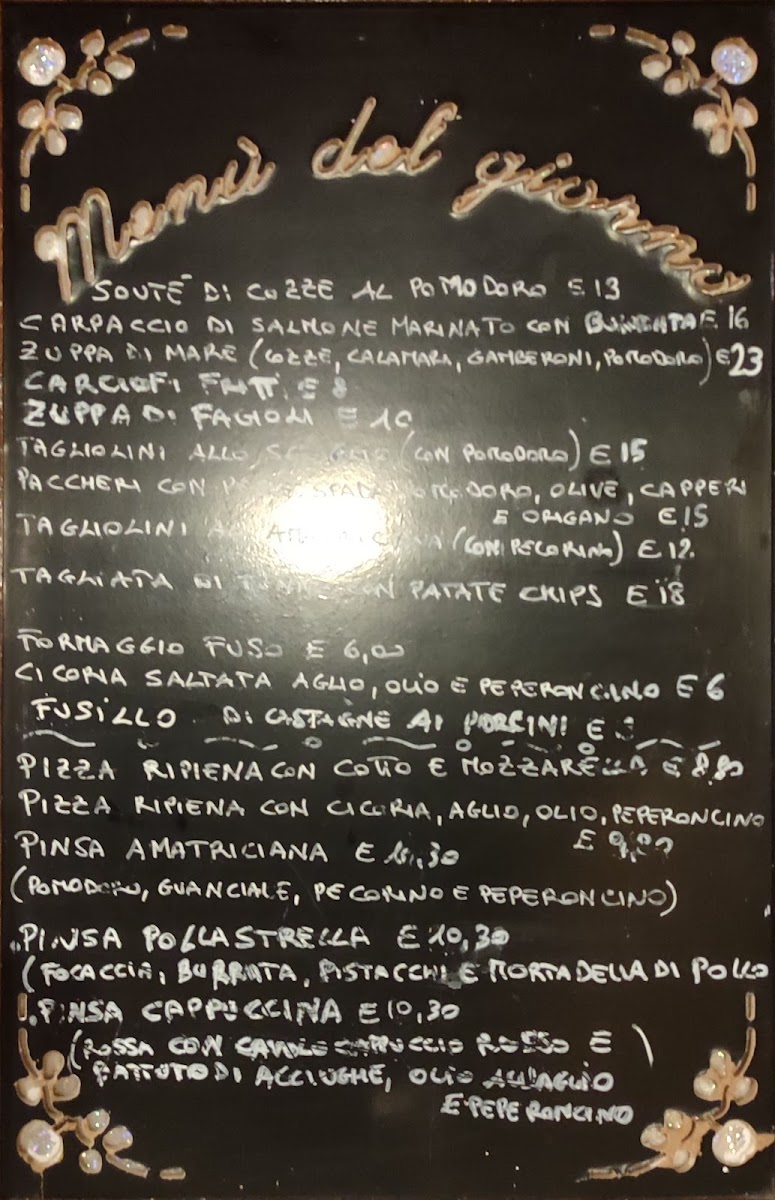 Menù del giorno
SOUTÈ DI COZZE AL POMODORO E 13
CARPACCIO DI SALMONE MARINATO CON E 16
ZUPPA DI MARE (COZZE, CALAMARI, GAMBERONI, POMODORO) E 23
CARCIOFI FRITTI E 8
ZUPPA DI FAGIOLI E 10
TAGLIOLINI ALLO (CON POMODORO) E 15
PACCHERI CON SPADA, POMODORO, OLIVE, CAPPERI
E ORIGANO E 15
TAGLIOLINI (CON PECORINO) E 12
TAGLIATA DI CON PATATE CHIPS E 18
FORMAGGIO FUSO E 6,00
CICORIA SALTATA AGLIO, OLIO E PEPERONCINO E 6
FUSILLO DI CASTAGNE AI PORCINI E
PIZZA RIPIENA CON COTTO E MOZZARELLA E 8,80
PIZZA RIPIENA CON CICORIA, AGLIO, OLIO, PEPERONCINO
E
PINSA AMATRICIANA E 10,30
(POMODORO, GUANCIALE, PECORINO E PEPERONCINO)
PINSA POLLASTRELLA E 10,30
(FOCACCIA, BURRATA, PISTACCHI E MORTADELLA DI POLLO
PINSA CAPPUCCINA E 10,30
(ROSSA CON CAVOLO CAPPUCCIO ROSSO E )
BATTUTO DI ACCIUGHE, OLIO ALL'AGLIO
E PEPERONCINO